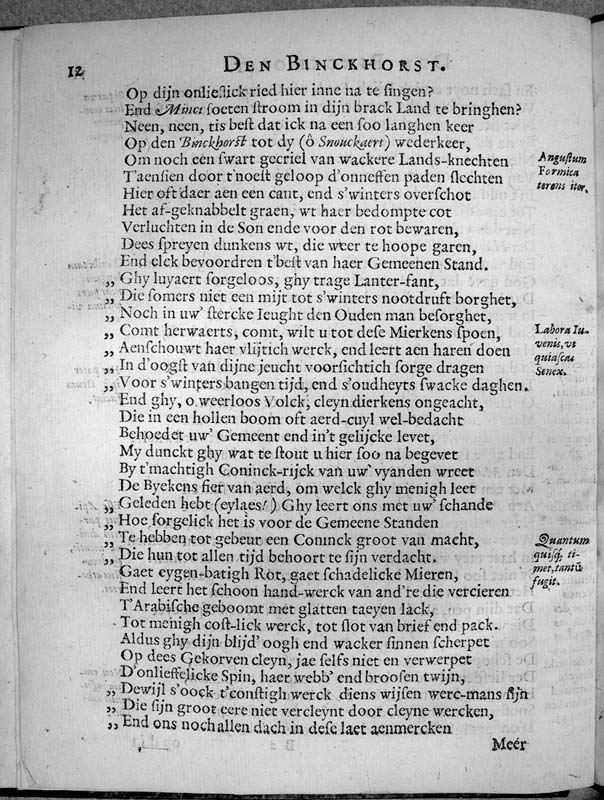 12
DEN BINCKHORST.
Op dijn onlieflick ried hier inne na te singen?
End Minci soeten stroom in dijn brack Land te bringhen?
Neen, neen, tis best dat ick na een soo langhen keer
Op den Binckhorst tot dy (ô Snouckaert) wederkeer,
Om noch een swart gecriel van wackere Lands-knechten
T'aensien door t'noest geloop d'onneffen paden slechten
Hier oft daer aen een cant, end s'winters overschot
Het af-geknabbelt graen, wt haer bedompte cot
Verluchten in de Son ende voor den rot bewaren,
Dees spreyen dunkens wt, die weer te hoope garen,
End elck bevoordren t'best van haer Gemeenen Stand.
„ Ghy luyaert sorgeloos, ghy trage Lanter-fant,
„ Die somers niet een mijt tot s'winters nootdruft borghet,
„ Noch in uw' stercke Ieught den Ouden man besorghet,
„ Comt herwaerts, comt, wilt u tot dese Mierkens spoen,
„ Aenschouwt haer vlijtich werck, end leert aen haren doen
„ In d'oogst van dijne jeucht voorsichtich sorge dragen
„ Voor s'winters bangen tijd, end s'oudheyts swacke daghen.
End ghy, o weerloos Volck, cleyn dierkens ongeacht,
Die in een hollen boom oft aerd-cuyl wel-bedacht
Behoedet uw' Gemeent end in't gelijcke levet,
My dunckt ghy wat te stout u hier soo na begevet
By t'machtigh Coninck-rijck van uw' vyanden wreet
De Byekens fier van aerd, om welck ghy menigh leet
„ Geleden hebt (eylaes!) Ghy leert ons met uw' schande
„ Hoe sorgelick het is voor de Gemeene Standen
„ Te hebben tot gebeur een Coninck groot van macht,
„ Die hun tot allen tijd behoort te sijn verdacht.
Gaet eygen-batigh Rot, gaet schadelicke Mieren,
End leert het schoon hand-werck van and're die vercieren
T'Arabische geboomt met glatten taeyen lack,
Tot menigh cost-lick werck, tot slot van brief end pack.
Aldus ghy dijn blijd' oogh end wacker sinnen scherpet
Op dees Gekorven cleyn, jae selfs niet en verwerpet
D'onlieffelicke Spin, haer webb' end broosen twijn,
„ Dewijl s'oock t'constigh werck diens wijsen werc-mans sijn
„ Die sijn groot eere niet vercleynt door cleyne wercken,
„ End ons noch allen dach in dese laet aenmercken
Meér
Angustum
Formica
terens iter.
Labora Iu-
venis, ut
quiescas
Senex.
Quantum
quisq; ti-
met, tantū
fugit.